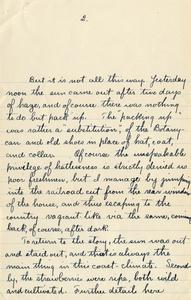 2.
But it is not all this way. Yesterday
noon the sun came out after two days
of haze, and of course there was nothing
to do but pack up. The packing up
was rather a substitution, of the Botany
can and old shoes in place of hat, coat,
and collar. Of course the unspeakable
privilege of hatlessness is strictly denied us
poor freshmen, but I manage by jumping
into the railroad cut from the rear window
of the house, and thus escaping to the
country vagrant like via the same, come
back, of course, after dark.
To return to the story, the sun was out
and staid out, and that is always the
main thing in this coast climate. Second-
ly, the strawberries were ripe, both wild
and cultivated. Further details here